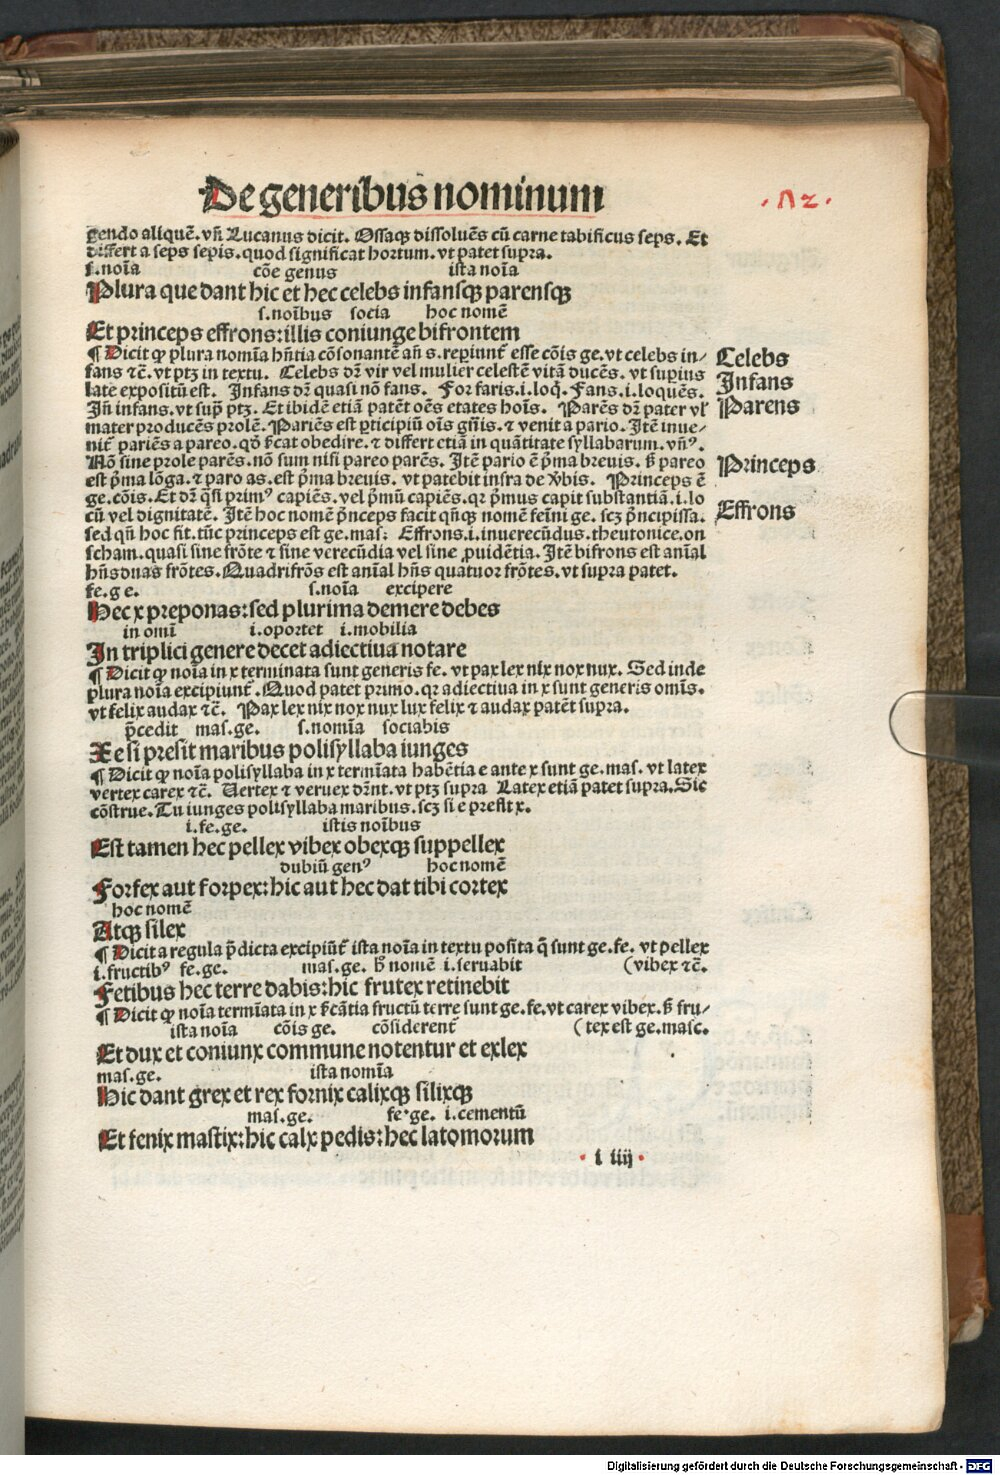 De generibus nominum
.Λ2.
gendo aliquē. vñ Lucanus dicit. Ossaqꝫ dissoluēs cū carne tabificus seps. Et
differt a seps sepis. quod significat hortum. vt patet supra.
s. noīa cōe genus ista noīa
Plura que dant hic et hec celebs infansqꝫ parensqꝫ
s. noībus socia hoc nomē
Et princeps effrons: illis coniunge bifrontem
¶ Dicit ꝙ plura nomīa hñtia cōsonantē añ s. reꝑiunt̄ esse cōis ge. vt celebs in/
fans ⁊c̄. vt ptꝫ in textu. Celebs dr̄ vir vel mulier celestē vitā ducēs. vt suꝑius
late expositū est. Infans dr̄ quasi nō fans. For faris. i. loq̄. Fans. i. loquēs.
Iñ infans. vt sup̄ ptꝫ. Et ibidē etiā patēt oēs etates hoīs. Parēs dr̄ pater vl̓
mater producēs prolē. Pariēs est ꝑticipiū oīs gn̄is. ⁊ venit a pario. Itē inue-
nit̄ pariēs a pareo. qḋ ẜcat obedire. ⁊ differt etiā in quātitate syllabarum. vñꝰ.
Nō sine prole parēs. nō sum nisi pareo parēs. Itē pario ē p̄ma breuis. ẜ pareo
est p̄ma lōga. ⁊ paro as. est p̄ma breuis. vt patebit infra de v̓bis. Princeps ē
ge. cōis. Et dr̄ q̄si primꝰ capiēs. vel p̄mū capiēs. qꝛ p̄mus capit substantiā. i. lo
cū vel dignitatē. Itē hoc nomē p̄nceps facit qñqꝫ nomē feīni ge. scꝫ p̄ncipissa.
sed qñ hoc fit. tūc princeps est ge. mas: Effrons. i. inuerecūdus. theutonice. on
scham. quasi sine frōte ⁊ sine verecūdia vel sine ꝓuidētia. Itē bifrons est aīal
hñs duas frōtes. Quadrifrōs est aīal hñs quatuor frōtes. vt supra patet.
Celebs
Infans
Parens
Princeps
Effrons
fe. ge. s. noīa excipere
Hec x preponas: sed plurima demere debes
in omī i. oportet i. mobilia
In triplici genere decet adiectiua notare
¶ Dicit ꝙ noīa in x terminata sunt generis fe. vt pax lex nix nox nux. Sed inde
plura noīa excipiunt̄. Quod patet primo. qꝛ adiectiua in x sunt generis omīs.
vt felix audax ⁊c̄. Pax lex nix nox nux lux felix ⁊ audax patēt supra.
p̄cedit mas. ge. s. nomīa sociabis
X e si presit maribus polisyllaba iunges
¶ Dicit ꝙ noīa polisyllaba in x termīata habētia e ante x sunt ge. mas. vt latex
vertex carex ⁊c̄. Vertex ⁊ veruex dn̄t. vt ptꝫ supra Latex etiā patet supra. Sic
cōstrue. Tu iunges polisyllaba maribus. scꝫ si e presit x.
i. fe. ge. istis noībus
Est tamen hec pellex vibex obexqꝫ suppellex
dubiū genꝰ hoc nomē
Forfex aut forpex: hic aut hec dat tibi cortex
hoc nomē
Atqꝫ silex
¶ Dicit a regula p̄dicta excipiūt̄ ista noīa in textu posita q̄ sunt ge. fe. vt pellex
i. fructibꝰ fe. ge. mas. ge. h̄ nomē i. seruabit (vibex ⁊c̄.
Fetibus hec terre dabis: hic frutex retinebit
¶ Dicit ꝙ noīa termīata in x ẜcātia fructū terre sunt ge. fe. vt carex vibex. ẜ fru/
ista noīa cōis ge. cōsiderent̄ (tex est ge. masc.
Et dux et coniunx commune notentur et exlex
mas. ge. ista nomīa
Hic dant grex et rex fornix calixqꝫ silixqꝫ
mas. ge. fe. ge. i. cementū
Et fenix mastix: hic calx pedis: hec latomorum
i iiij
Digitalisierung gefördert durch die Deutsche Forschungsgemeinschaft - DFG